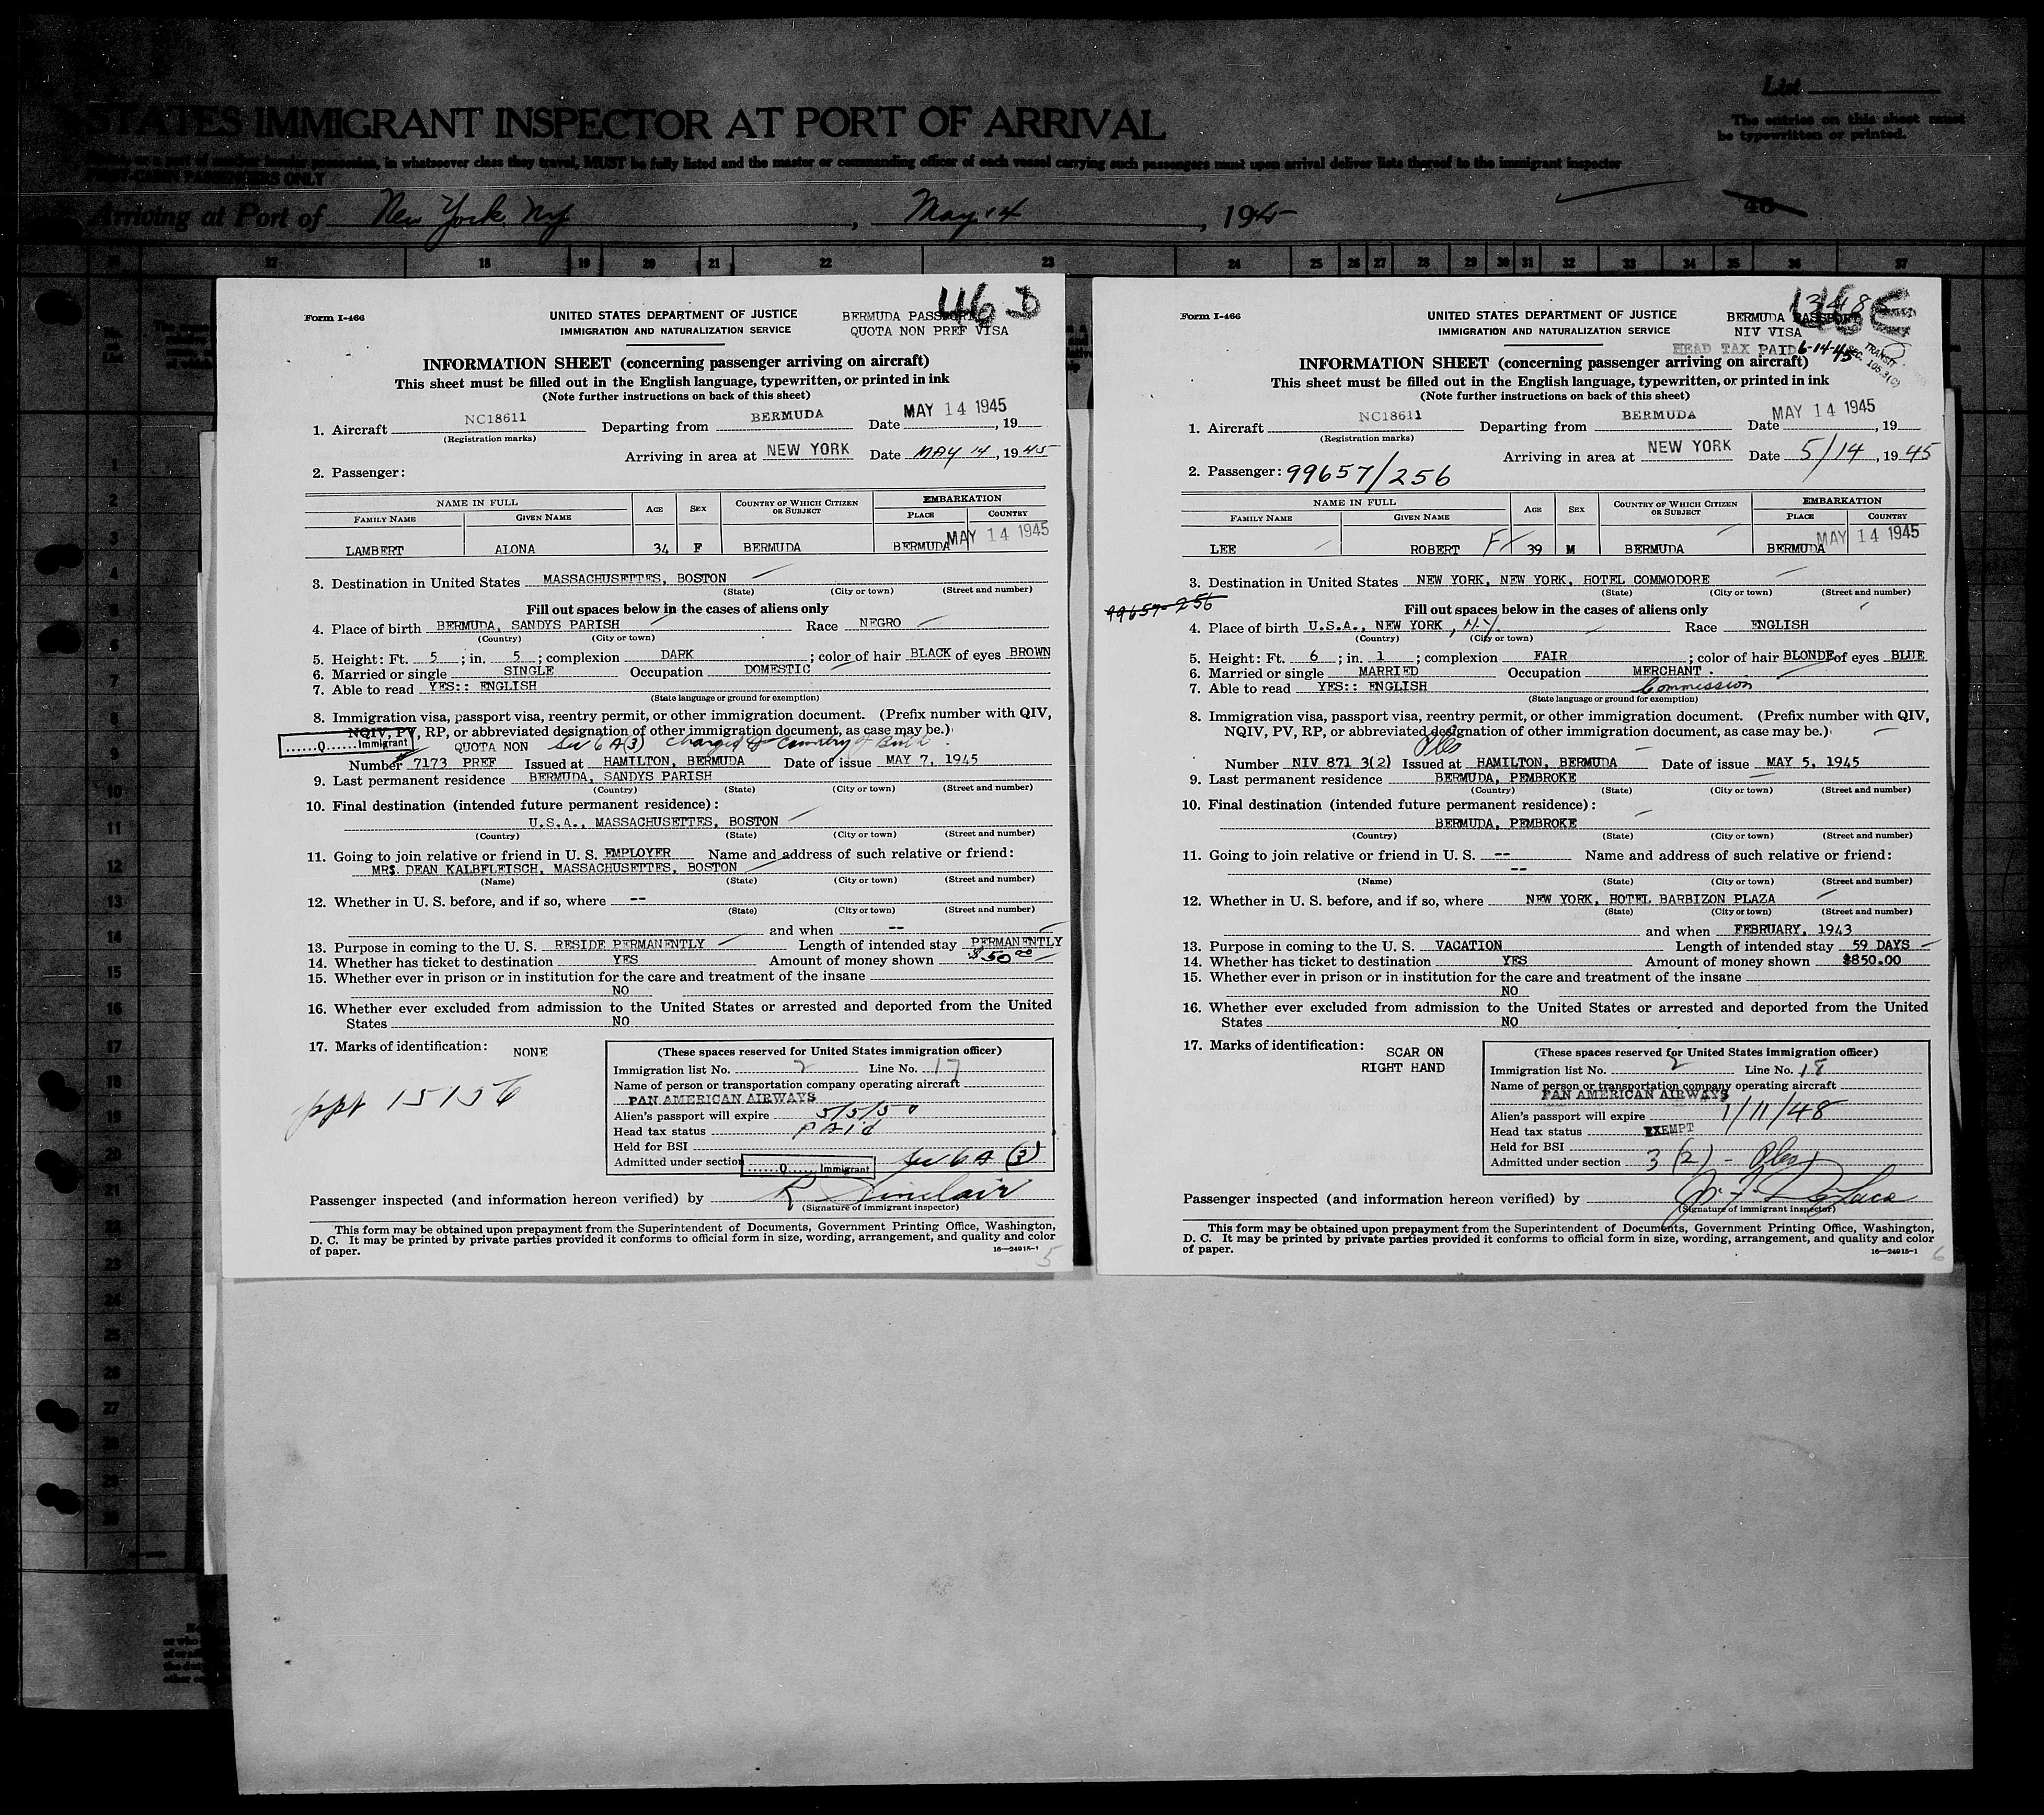 List
STATES IMMIGRANT INSPECTOR AT PORT OF ARRIVAL
The entries on this sheet must
be typewritten or printed.
in whatsoever class they travel, MUST be fully listed and the master or commanding officer of each vessel carrying such passengers must upon arrival deliver lists thereof to the immigrant inspector
PASSENGERS ONLY
Arriving at Port of New York NY, May 14, 1945
46
17 18 19 20 21 22 23 24 25 26 27 28 29 30 31 32 33 34 35 36 37
46 D
Form I-466
UNITED STATES DEPARTMENT OF JUSTICE
IMMIGRATION AND NATURALIZATION SERVICE
BERMUDA PASSPORT
QUOTA NON PREF VISA
INFORMATION SHEET (concerning passenger arriving on aircraft)
This sheet must be filled out in the English language, typewritten, or printed in ink
(Note further instructions on back of this sheet)
1. Aircraft NC18611 Departing from BERMUDA Date MAY 14 1945, 19
(Registration marks)
Arriving in area at NEW YORK Date MAY 14, 1945
2. Passenger:
NAME IN FULL AGE SEX COUNTRY OF WHICH CITIZEN OR SUBJECT EMBARKATION
FAMILY NAME GIVEN NAME PLACE COUNTRY
LAMBERT ALONA 34 F BERMUDA BERMUDA MAY 14 1945
3. Destination in United States MASSACHUSETTES, BOSTON
(State) (City or town) (Street and number)
Fill out spaces below in the cases of aliens only
4. Place of birth BERMUDA, SANDYS PARISH Race NEGRO
(Country) (City or town)
5. Height: Ft. 5; in. 5; complexion DARK; color of hair BLACK of eyes BROWN
6. Married or single SINGLE Occupation DOMESTIC
7. Able to read YES:: ENGLISH
(State language or ground for exemption)
8. Immigration visa, passport visa, reentry permit, or other immigration document. (Prefix number with QIV,
NQIV, PV, RP, or abbreviated designation of other immigration document, as case may be.)
......Q......Immigrant QUOTA NON Sec 6 A(3) Charged to Country of Birth.
Number 7173 PREF Issued at HAMILTON, BERMUDA Date of issue MAY 7, 1945
9. Last permanent residence BERMUDA, SANDYS PARISH
(Country) (State) (City or town) (Street and number)
10. Final destination (intended future permanent residence):
U.S.A., MASSACHUSETTES, BOSTON
(Country) (State) (City or town) (Street and number)
11. Going to join relative or friend in U. S. EMPLOYER Name and address of such relative or friend:
MRS. DEAN KALBFLEISCH, MASSACHUSETTES, BOSTON
(Name) (State) (City or town) (Street and number)
12. Whether in U. S. before, and if so, where --
(State) (City or town) (Street and number)
and when --
13. Purpose in coming to the U. S. RESIDE PERMANENTLY Length of intended stay PERMANENTLY
14. Whether has ticket to destination YES Amount of money shown $50.00
15. Whether ever in prison or in institution for the care and treatment of the insane
NO
16. Whether ever excluded from admission to the United States or arrested and deported from the United
States NO
17. Marks of identification: NONE
ppt 15156
(These spaces reserved for United States immigration officer)
Immigration list No. 2 Line No. 17
Name of person or transportation company operating aircraft
PAN AMERICAN AIRWAYS
Alien's passport will expire 5/5/50
Head tax status PAID
Held for BSI
Admitted under section ......Q......Immigrant Sec 6 A (3)
Passenger inspected (and information hereon verified) by R Sinclair
(Signature of immigrant inspector)
This form may be obtained upon prepayment from the Superintendent of Documents, Government Printing Office, Washington,
D. C. It may be printed by private parties provided it conforms to official form in size, wording, arrangement, and quality and color
of paper.
16—24915-1
5
46 E
Form I-466
UNITED STATES DEPARTMENT OF JUSTICE
IMMIGRATION AND NATURALIZATION SERVICE
BERMUDA PASSPORT
NIV VISA
HEAD TAX PAID 6-14-45
TRANSIT
SEC. 105.3(c)
INFORMATION SHEET (concerning passenger arriving on aircraft)
This sheet must be filled out in the English language, typewritten, or printed in ink
(Note further instructions on back of this sheet)
1. Aircraft NC18611 Departing from BERMUDA Date MAY 14 1945, 19
(Registration marks)
Arriving in area at NEW YORK Date 5/14, 1945
2. Passenger: 99657/256
NAME IN FULL AGE SEX COUNTRY OF WHICH CITIZEN OR SUBJECT EMBARKATION
FAMILY NAME GIVEN NAME PLACE COUNTRY
LEE ROBERT F 39 M BERMUDA BERMUDA MAY 14 1945
3. Destination in United States NEW YORK, NEW YORK, HOTEL COMMODORE
(State) (City or town) (Street and number)
99657-256
Fill out spaces below in the cases of aliens only
4. Place of birth U.S.A., NEW YORK, N.Y. Race ENGLISH
(Country) (City or town)
5. Height: Ft. 6; in. 1; complexion FAIR; color of hair BLONDE of eyes BLUE
6. Married or single MARRIED Occupation MERCHANT.
Commission
7. Able to read YES:: ENGLISH
(State language or ground for exemption)
8. Immigration visa, passport visa, reentry permit, or other immigration document. (Prefix number with QIV,
NQIV, PV, RP, or abbreviated designation of other immigration document, as case may be.)
Number NIV 871 3(2) Issued at HAMILTON, BERMUDA Date of issue MAY 5, 1945
9. Last permanent residence BERMUDA, PEMBROKE
(Country) (State) (City or town) (Street and number)
10. Final destination (intended future permanent residence):
BERMUDA, PEMBROKE
(Country) (State) (City or town) (Street and number)
11. Going to join relative or friend in U. S. -- Name and address of such relative or friend:
--
(Name) (State) (City or town) (Street and number)
12. Whether in U. S. before, and if so, where NEW YORK, HOTEL BARBIZON PLAZA
(State) (City or town) (Street and number)
and when FEBRUARY, 1943
13. Purpose in coming to the U. S. VACATION Length of intended stay 59 DAYS
14. Whether has ticket to destination YES Amount of money shown $850.00
15. Whether ever in prison or in institution for the care and treatment of the insane
NO
16. Whether ever excluded from admission to the United States or arrested and deported from the United
States NO
17. Marks of identification: SCAR ON
RIGHT HAND
(These spaces reserved for United States immigration officer)
Immigration list No. 2 Line No. 18
Name of person or transportation company operating aircraft
PAN AMERICAN AIRWAYS
Alien's passport will expire 1/11/48
Head tax status EXEMPT
Held for BSI
Admitted under section 3 (2) -
Passenger inspected (and information hereon verified) by
(Signature of immigrant inspector)
This form may be obtained upon prepayment from the Superintendent of Documents, Government Printing Office, Washington,
D. C. It may be printed by private parties provided it conforms to official form in size, wording, arrangement, and quality and color
of paper.
16—24915-1
6